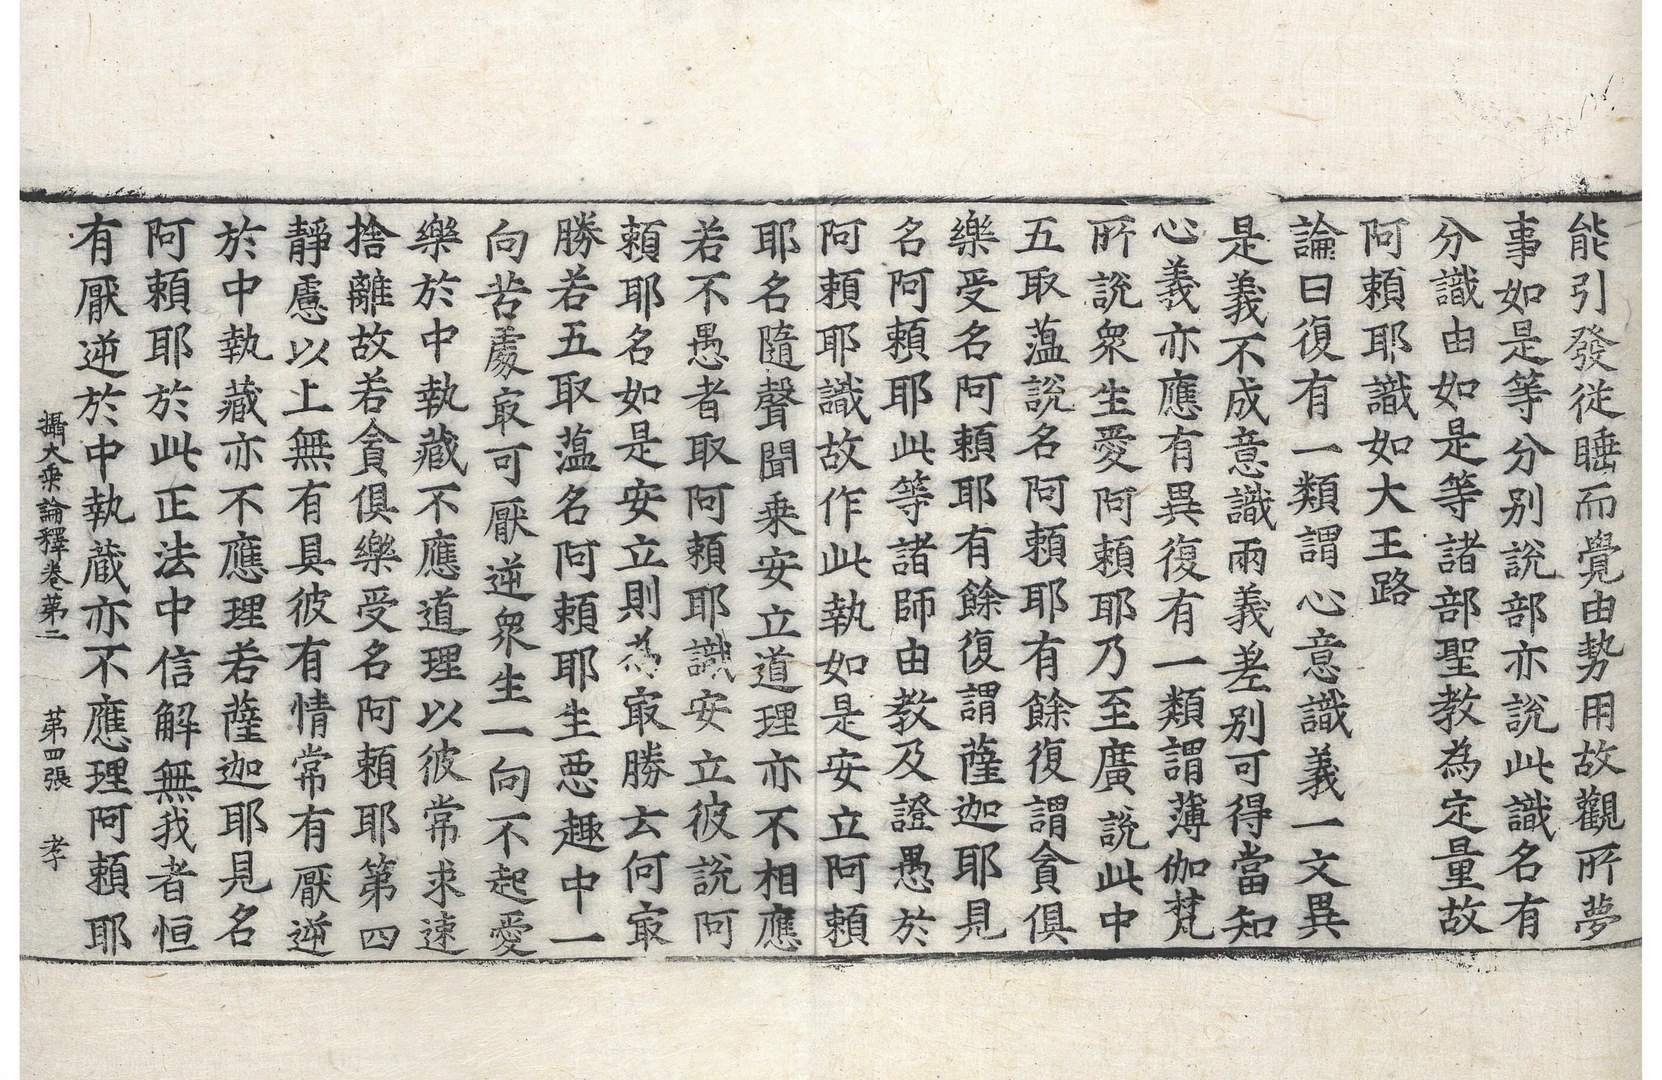 能引發從睡而覺由勢用故觀所夢
事如是等分別說部亦說此識名有
分識由如是等諸部聖教為定量故
阿賴耶識如大王路
論曰復有一類謂心意識義一文異
是義不成意識兩義差別可得當知
心義亦應有異復有一類謂薄伽梵
所說眾生愛阿賴耶乃至廣說此中
五取蕰說名阿賴耶有餘復謂貪俱
樂受名阿賴耶有餘復謂薩迦耶見
名阿賴耶此等諸師由教及證愚於
阿賴耶識故作此執如是安立阿賴
耶名隨聲聞乘安立道理亦不相應
若不愚者取阿賴耶識安立彼說阿
賴耶名如是安立則為㝡勝云何㝡
勝若五取蕰名阿賴耶生惡趣中一
向苦處㝡可厭逆眾生一向不起愛
樂於中執藏不應道理以彼常求速
捨離故若貪俱樂受名阿賴耶第四
靜慮以上無有具彼有情常有厭逆
於中執藏亦不應理若薩迦耶見名
阿賴耶於此正法中信解無我者恒
有厭逆於中執藏亦不應理阿賴耶
攝大乘論釋卷第二 第四張 孝